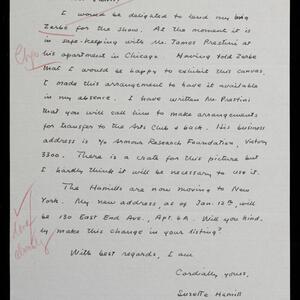 I would be delighted to lend my big
Zerbe for the show. At the moment it is
in safe-keeping with Mr. James Prestini at
his apartment in Chicago. Having told Zerbe
that I would be happy to exhibit this canvas,
I made this arrangement to have it available
in my absence. I have written Mr. Prestini
that you will call him to make arrangements
for transfer to the Arts Club & back. His business
address is c/o Armour Research Foundation, Victory
3300. There is a crate for this picture but
I hardly think it will be necessary to use it.
The Hamills are now moving to New
York. My new address, as of Jan. 12th, will
be 130 East End Ave., Apt. 6A. Will you kind-
ly make this change in your listing?
With best regards, I am
Cordially yours,
Suzette Hamill